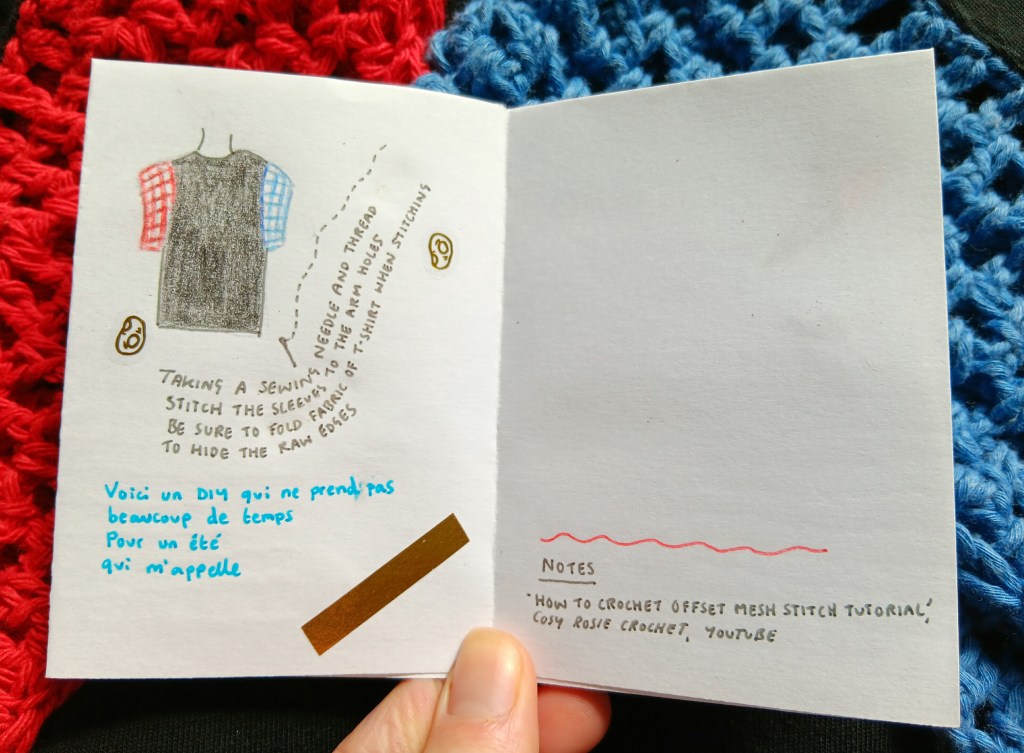 TAKING A SEWING NEEDLE AND THREAD
STITCH THE SLEEVES TO THE ARM HOLES
BE SURE TO FOLD FABRIC OF T-SHIRT WHEN STITCHING
TO HIDE THE RAW EDGES
Voici un DIY qui ne prend pas
beaucoup de temps
Pour un été
qui m'appelle
NOTES
'HOW TO CROCHET OFFSET MESH STITCH TUTORIAL',
COSY ROSIE CROCHET, YOUTUBE